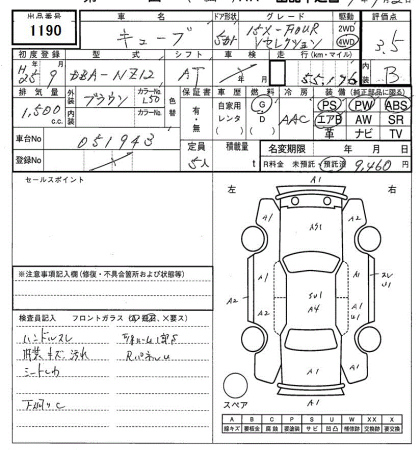 出品番号 車名 ドア形状 グレード 駆動 評価点
1190 キューブ 5D 15X-FOUR Vセレクション 2WD 4WD 3.5
初度登録 型式 シフト 車検 走行(km・マイル)
H25 9 DBA-NZ12 AT 年 月 B
排気量 外装 カラーNo. 保証書 車歴 燃料 冷房 装備(純正部品に限る)
1,500 c.c. ブラウン L50 色替 有・無 自家用 レンタ G D AAC PS PW ABS
内装 カラーNo. エアB AW SR
革 ナビ TV
車台No 051943 定員 積載量 名変期限 年 月 日
登録No 5人 t R料金 未預託・預託済 9,460 円
セールスポイント
左 右
※注意事項記入欄(修復・不具合箇所および状態等)
検査員記入 フロントガラス
ハンドルスレ
内装キズ、汚れ
シート
下廻りC
Rパネルu
A1
A1 A1
AS1
A2 A1 A1 スレ U1
SU1
A4
A2 A1 A1
U1
A1 A1
A1
A1
スペア
A B C P S U W X XX
線キズ 要板金 腐蝕 要塗装 サビ 凹凸 補修跡 要交換 交換済